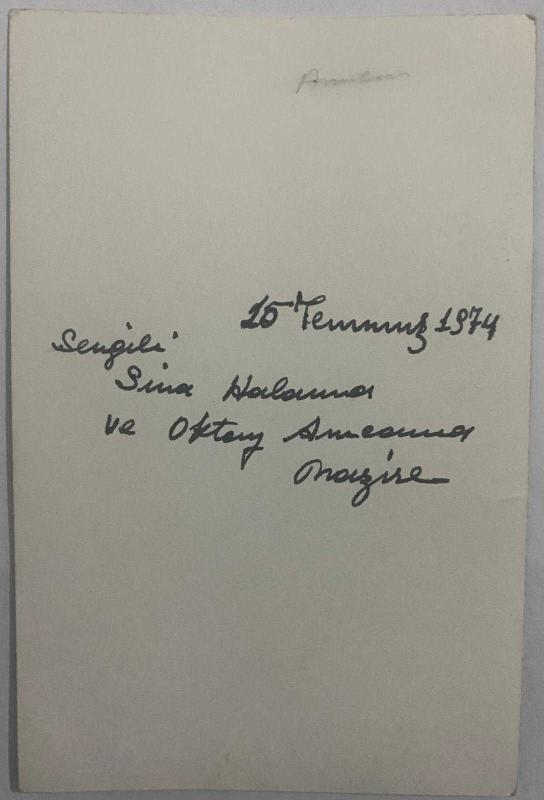 15 Temmuz 1974
Sevgili
Sina Halama
ve Oktay Amcama
Nazire